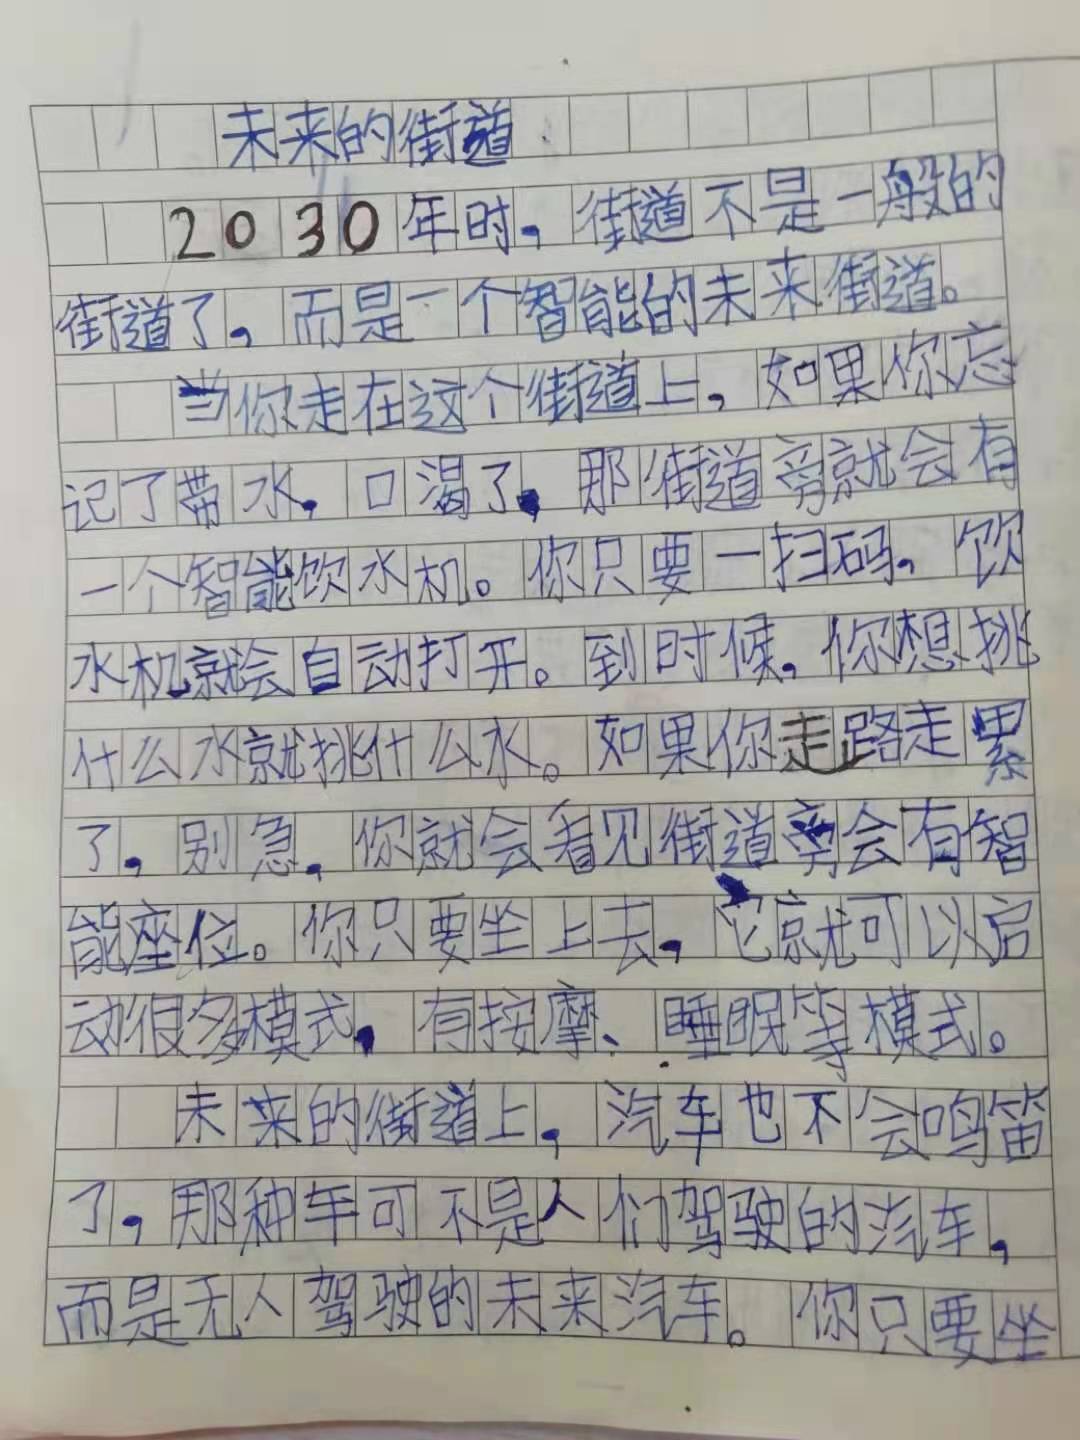 未来的街道
2030年时，街道不是一般的
街道了，而是一个智能的未来街道。
当你走在这个街道上，如果你忘
记了带水，口渴了，那街道旁就会有
一个智能饮水机。你只要一扫码，饮
水机就会自动打开。到时候，你想挑
什么水就挑什么水。如果你走路走累
了，别急，你就会看见街道旁会有智
能座位。你只要坐上去，它就可以启
动很多模式，有按摩、睡眠等模式。
未来的街道上，汽车也不会鸣笛
了，那种车可不是人们驾驶的汽车，
而是无人驾驶的未来汽车。你只要坐